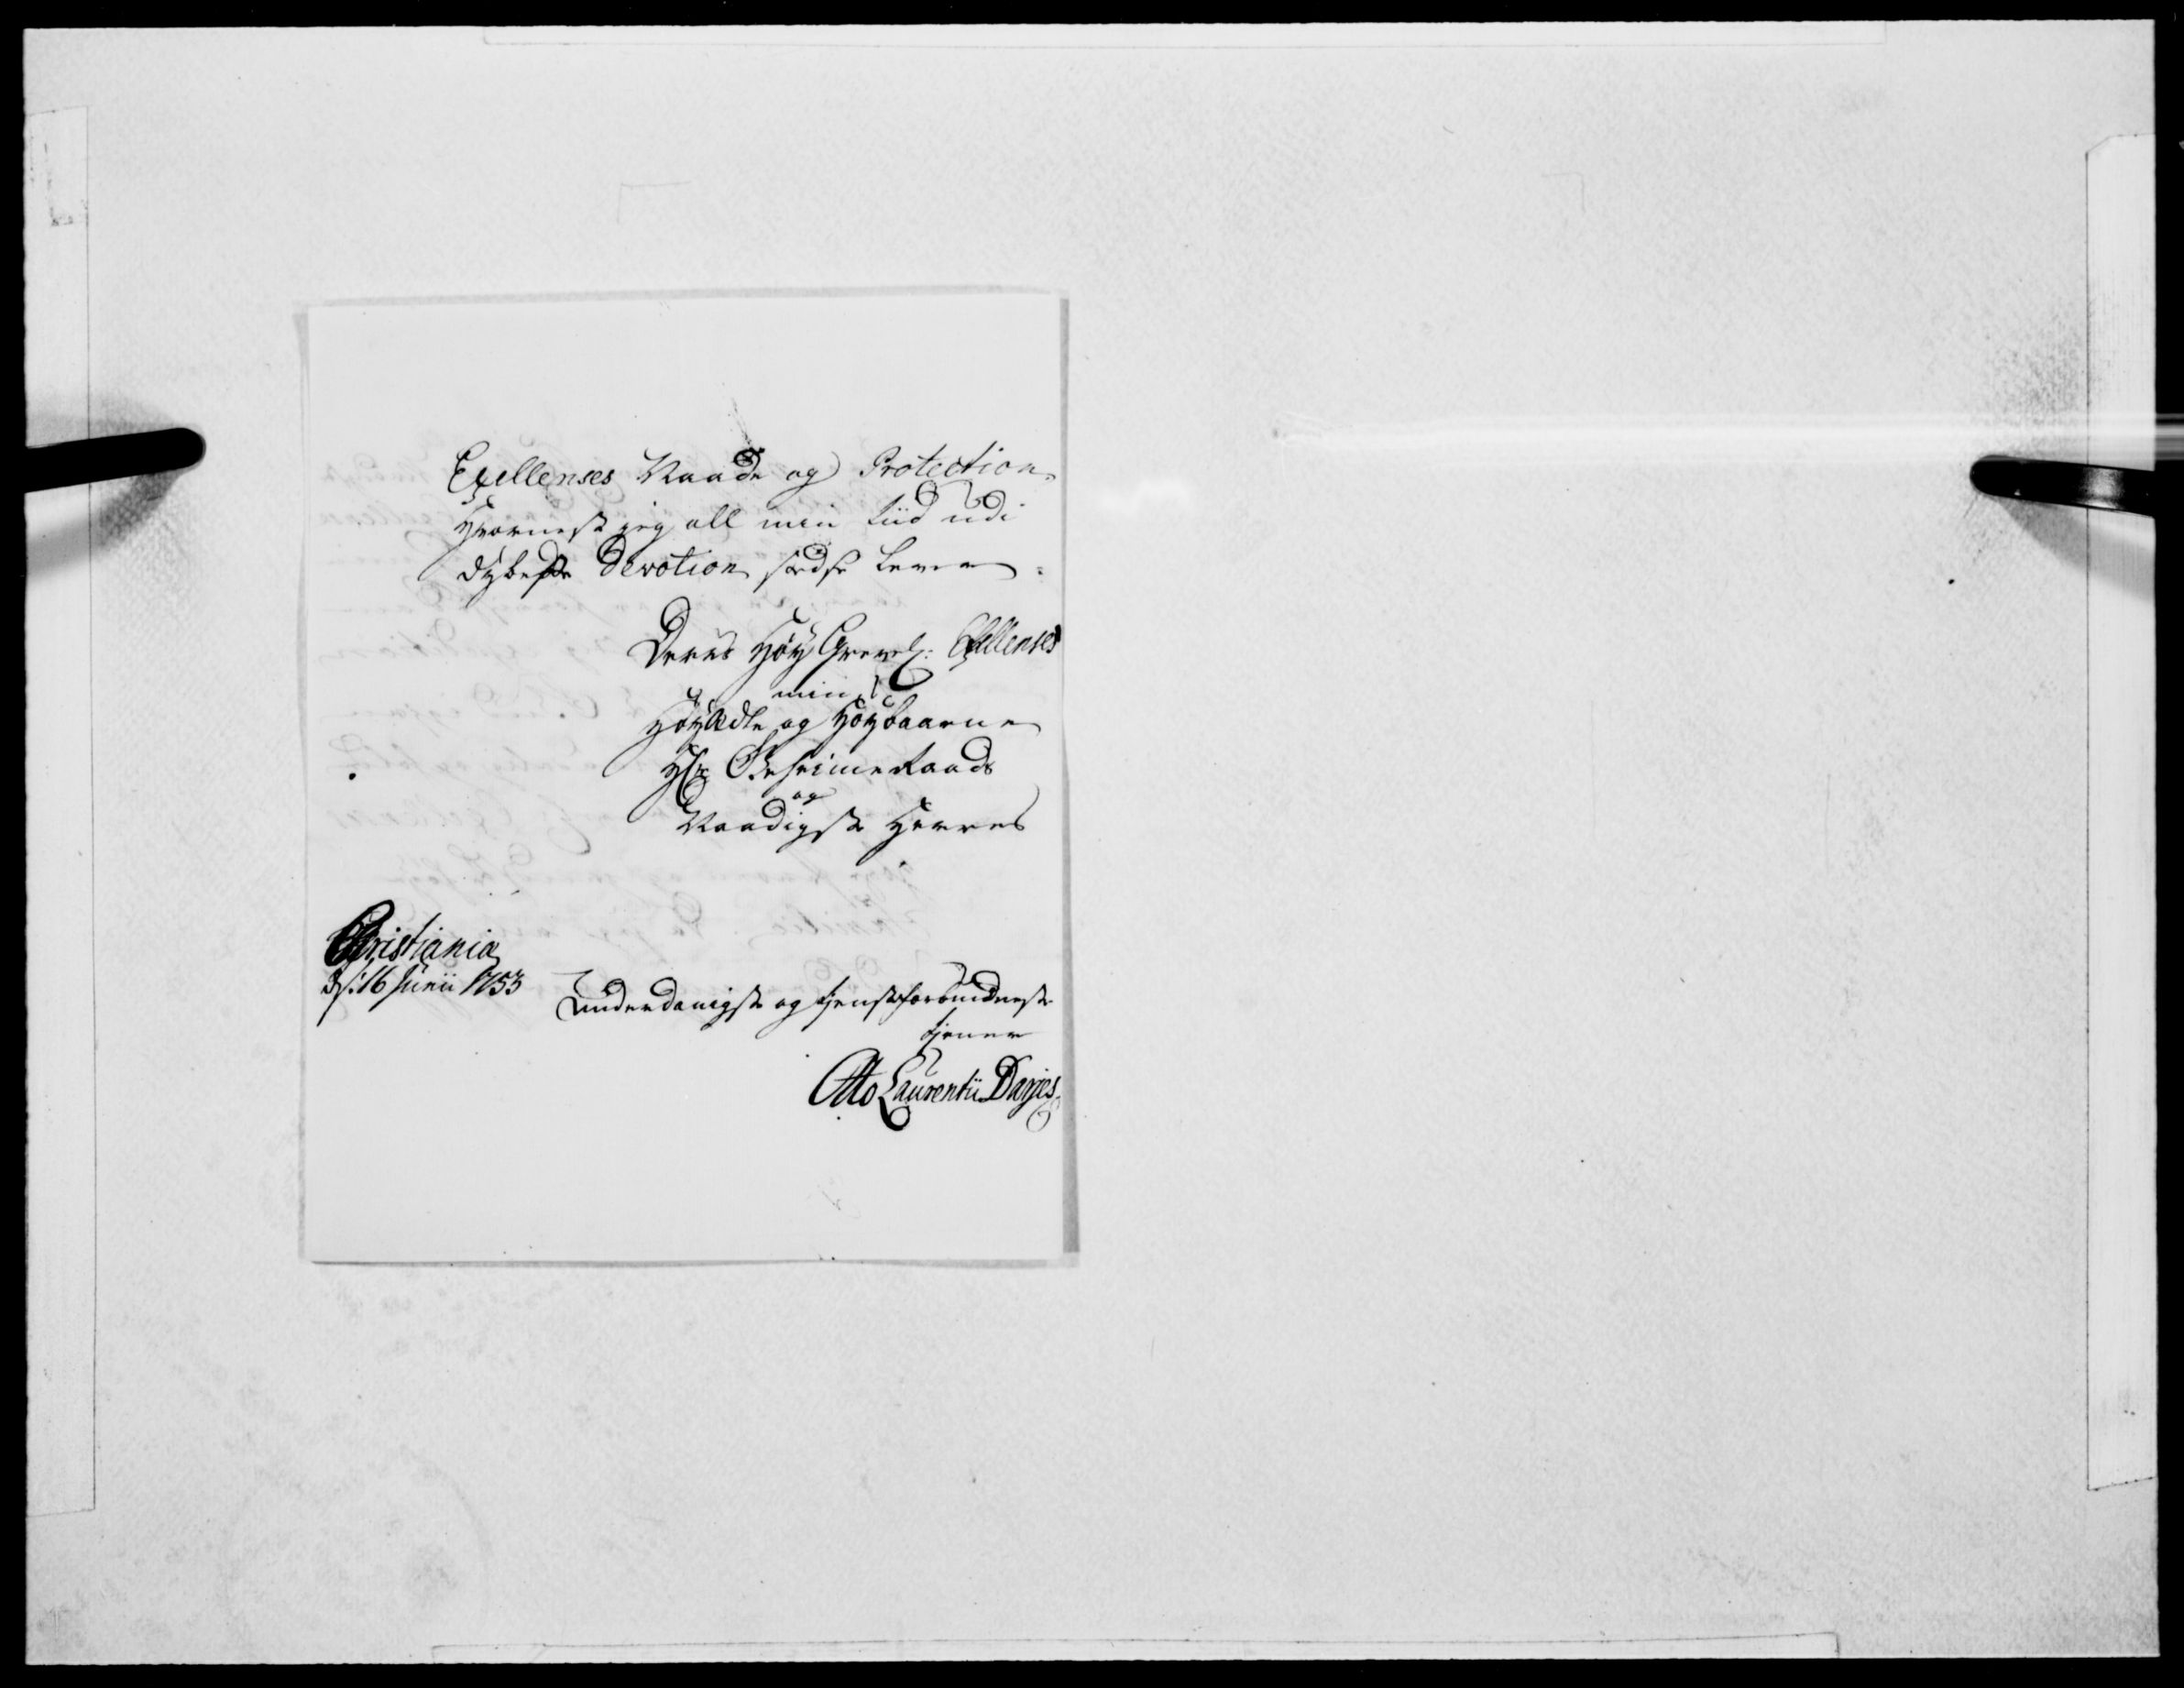 Exellenses Naade og Protection,
hvornest jeg all min tiid udi
dybeste Devotion stedse lever.
Deres Høy Grevel: Exellenses
min
HøyÆdle og Høybaarne
Hr Geheime Raads
og
Naadigste Herres
Christiania
d: 16 Junii 1753
Underdanigste og tienstforbundneste
tiener
Otto Laurentii Darjes